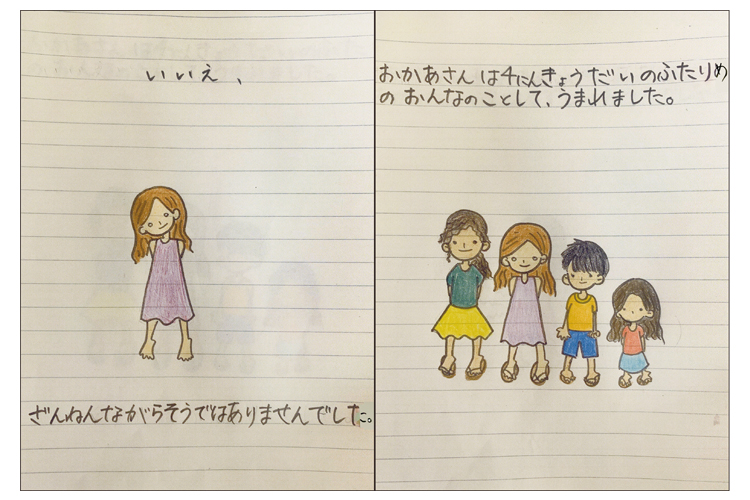 いいえ、
ざんねんながらそうではありませんでした。
おかあさんは4にんきょうだいのふたりめ
のおんなのことして、うまれました。